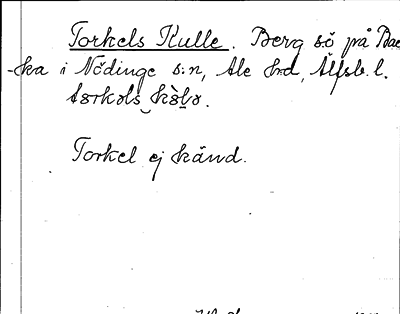 Torkels Kulle. Berg s.ö på Bac
-ka i Nödinge s:n, Ale h:d, Älfsb. l.
Torkel ej känd.